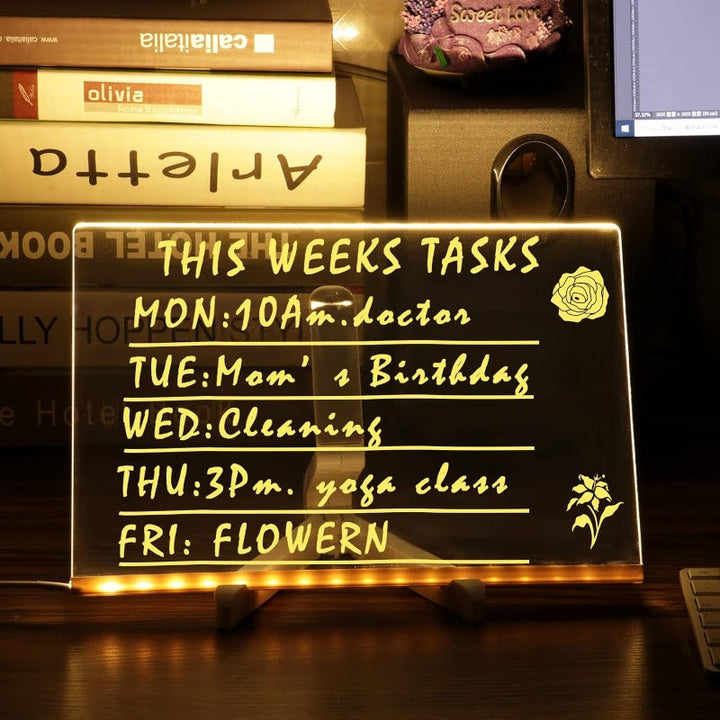 www.caliaitalia.com
caliaitalia
olivia
home decoration
Arletta
THE HOTEL BOOK
Sweet Love
THIS WEEKS TASKS
MON:10Am.doctor
TUE:Mom's Birthday
WED:Cleaning
THU:3Pm. yoga class
FRI: FLOWERN